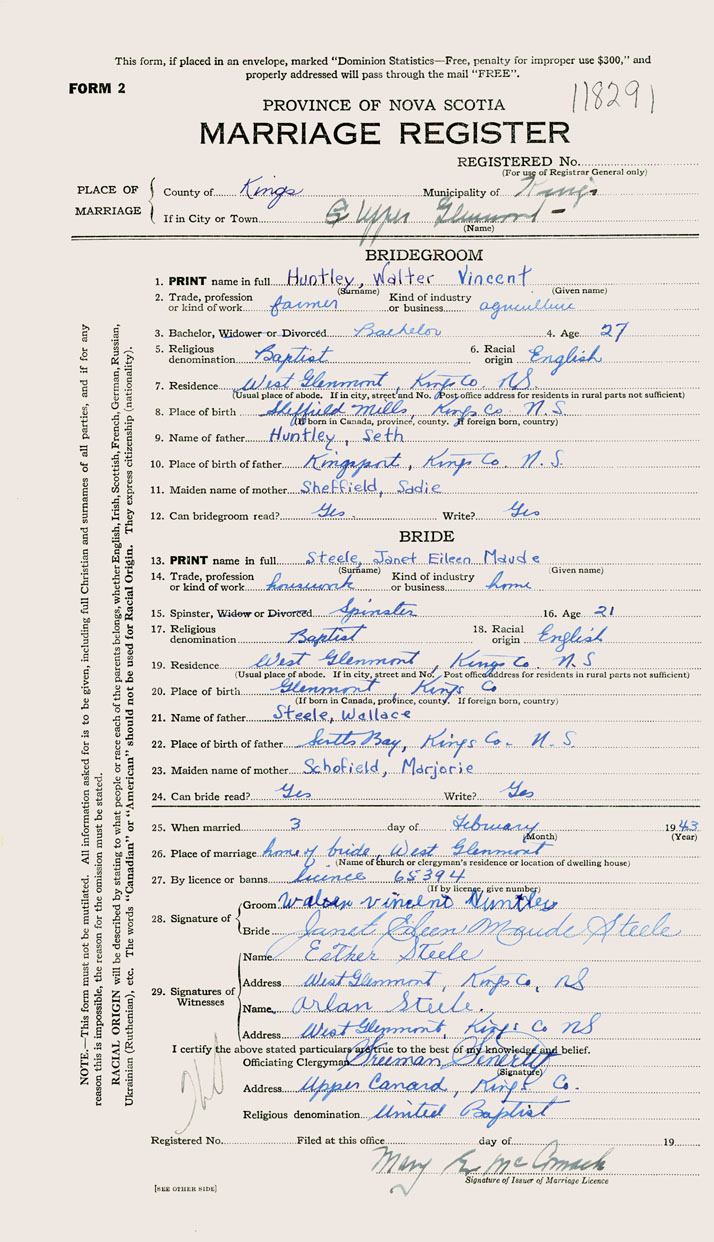 This form, if placed in an envelope, marked "Dominion Statistics—Free, penalty for improper use $300," and
properly addressed will pass through the mail "FREE".
FORM 2
118291
PROVINCE OF NOVA SCOTIA
MARRIAGE REGISTER
REGISTERED No.
(For use of Registrar General only)
PLACE OF MARRIAGE
County of Kings Municipality of Kings
If in City or Town Upper Glenmont -
(Name)
BRIDEGROOM
1. PRINT name in full Huntley, Walter Vincent
(Surname) (Given name)
2. Trade, profession or kind of work farmer Kind of industry or business agriculture
3. Bachelor, Widower or Divorced Bachelor 4. Age 27
5. Religious denomination Baptist 6. Racial origin English
7. Residence West Glenmont, Kings Co. N.S.
(Usual place of abode. If in city, street and No. Post office address for residents in rural parts not sufficient)
8. Place of birth Sheffield Mills, Kings Co N.S.
(If born in Canada, province, county. If foreign born, country)
9. Name of father Huntley, Seth
10. Place of birth of father Kingsport, Kings Co. N.S.
11. Maiden name of mother Sheffield, Sadie
12. Can bridegroom read? Yes. Write? Yes
BRIDE
13. PRINT name in full Steele, Janet Eileen Maude
(Surname) (Given name)
14. Trade, profession or kind of work housework Kind of industry or business home
15. Spinster, Widow or Divorced Spinster 16. Age 21
17. Religious denomination Baptist 18. Racial origin English
19. Residence West Glenmont, Kings Co. N.S
(Usual place of abode. If in city, street and No. Post office address for residents in rural parts not sufficient)
20. Place of birth Glenmont, Kings Co
(If born in Canada, province, county. If foreign born, country)
21. Name of father Steele, Wallace
22. Place of birth of father Scotts Bay, Kings Co. N.S.
23. Maiden name of mother Schofield, Marjorie
24. Can bride read? Yes Write? Yes
25. When married 3 day of February 1943
(Month) (Year)
26. Place of marriage home of bride, West Glenmont
(Name of church or clergyman's residence or location of dwelling house)
27. By licence or banns licence 65394
(If by license, give number)
28. Signature of
Groom Vincent Huntley
Bride Janet Eileen Maude Steele
29. Signatures of Witnesses
Name Esther Steele
Address West Glenmont, Kings Co, NS
Name Arlan Steele.
Address West Glenmont, Kings Co NS
I certify the above stated particulars are true to the best of my knowledge and belief.
Officiating Clergyman Freeman Fenerty
(Signature)
Address Upper Canard, Kings Co.
Religious denomination United Baptist
Registered No. Filed at this office day of 19
Mary E. McCormack
Signature of Issuer of Marriage Licence
[SEE OTHER SIDE]
NOTE.—This form must not be mutilated. All information asked for is to be given, including full Christian and surnames of all parties, and if for any
reason this is impossible, the reason for the omission must be stated.
RACIAL ORIGIN will be described by stating to what people or race each of the parents belongs, whether English, Irish, Scottish, French, German, Russian,
Ukrainian (Ruthenian), etc. The words "Canadian" or "American" should not be used for Racial Origin. They express citizenship (nationality).